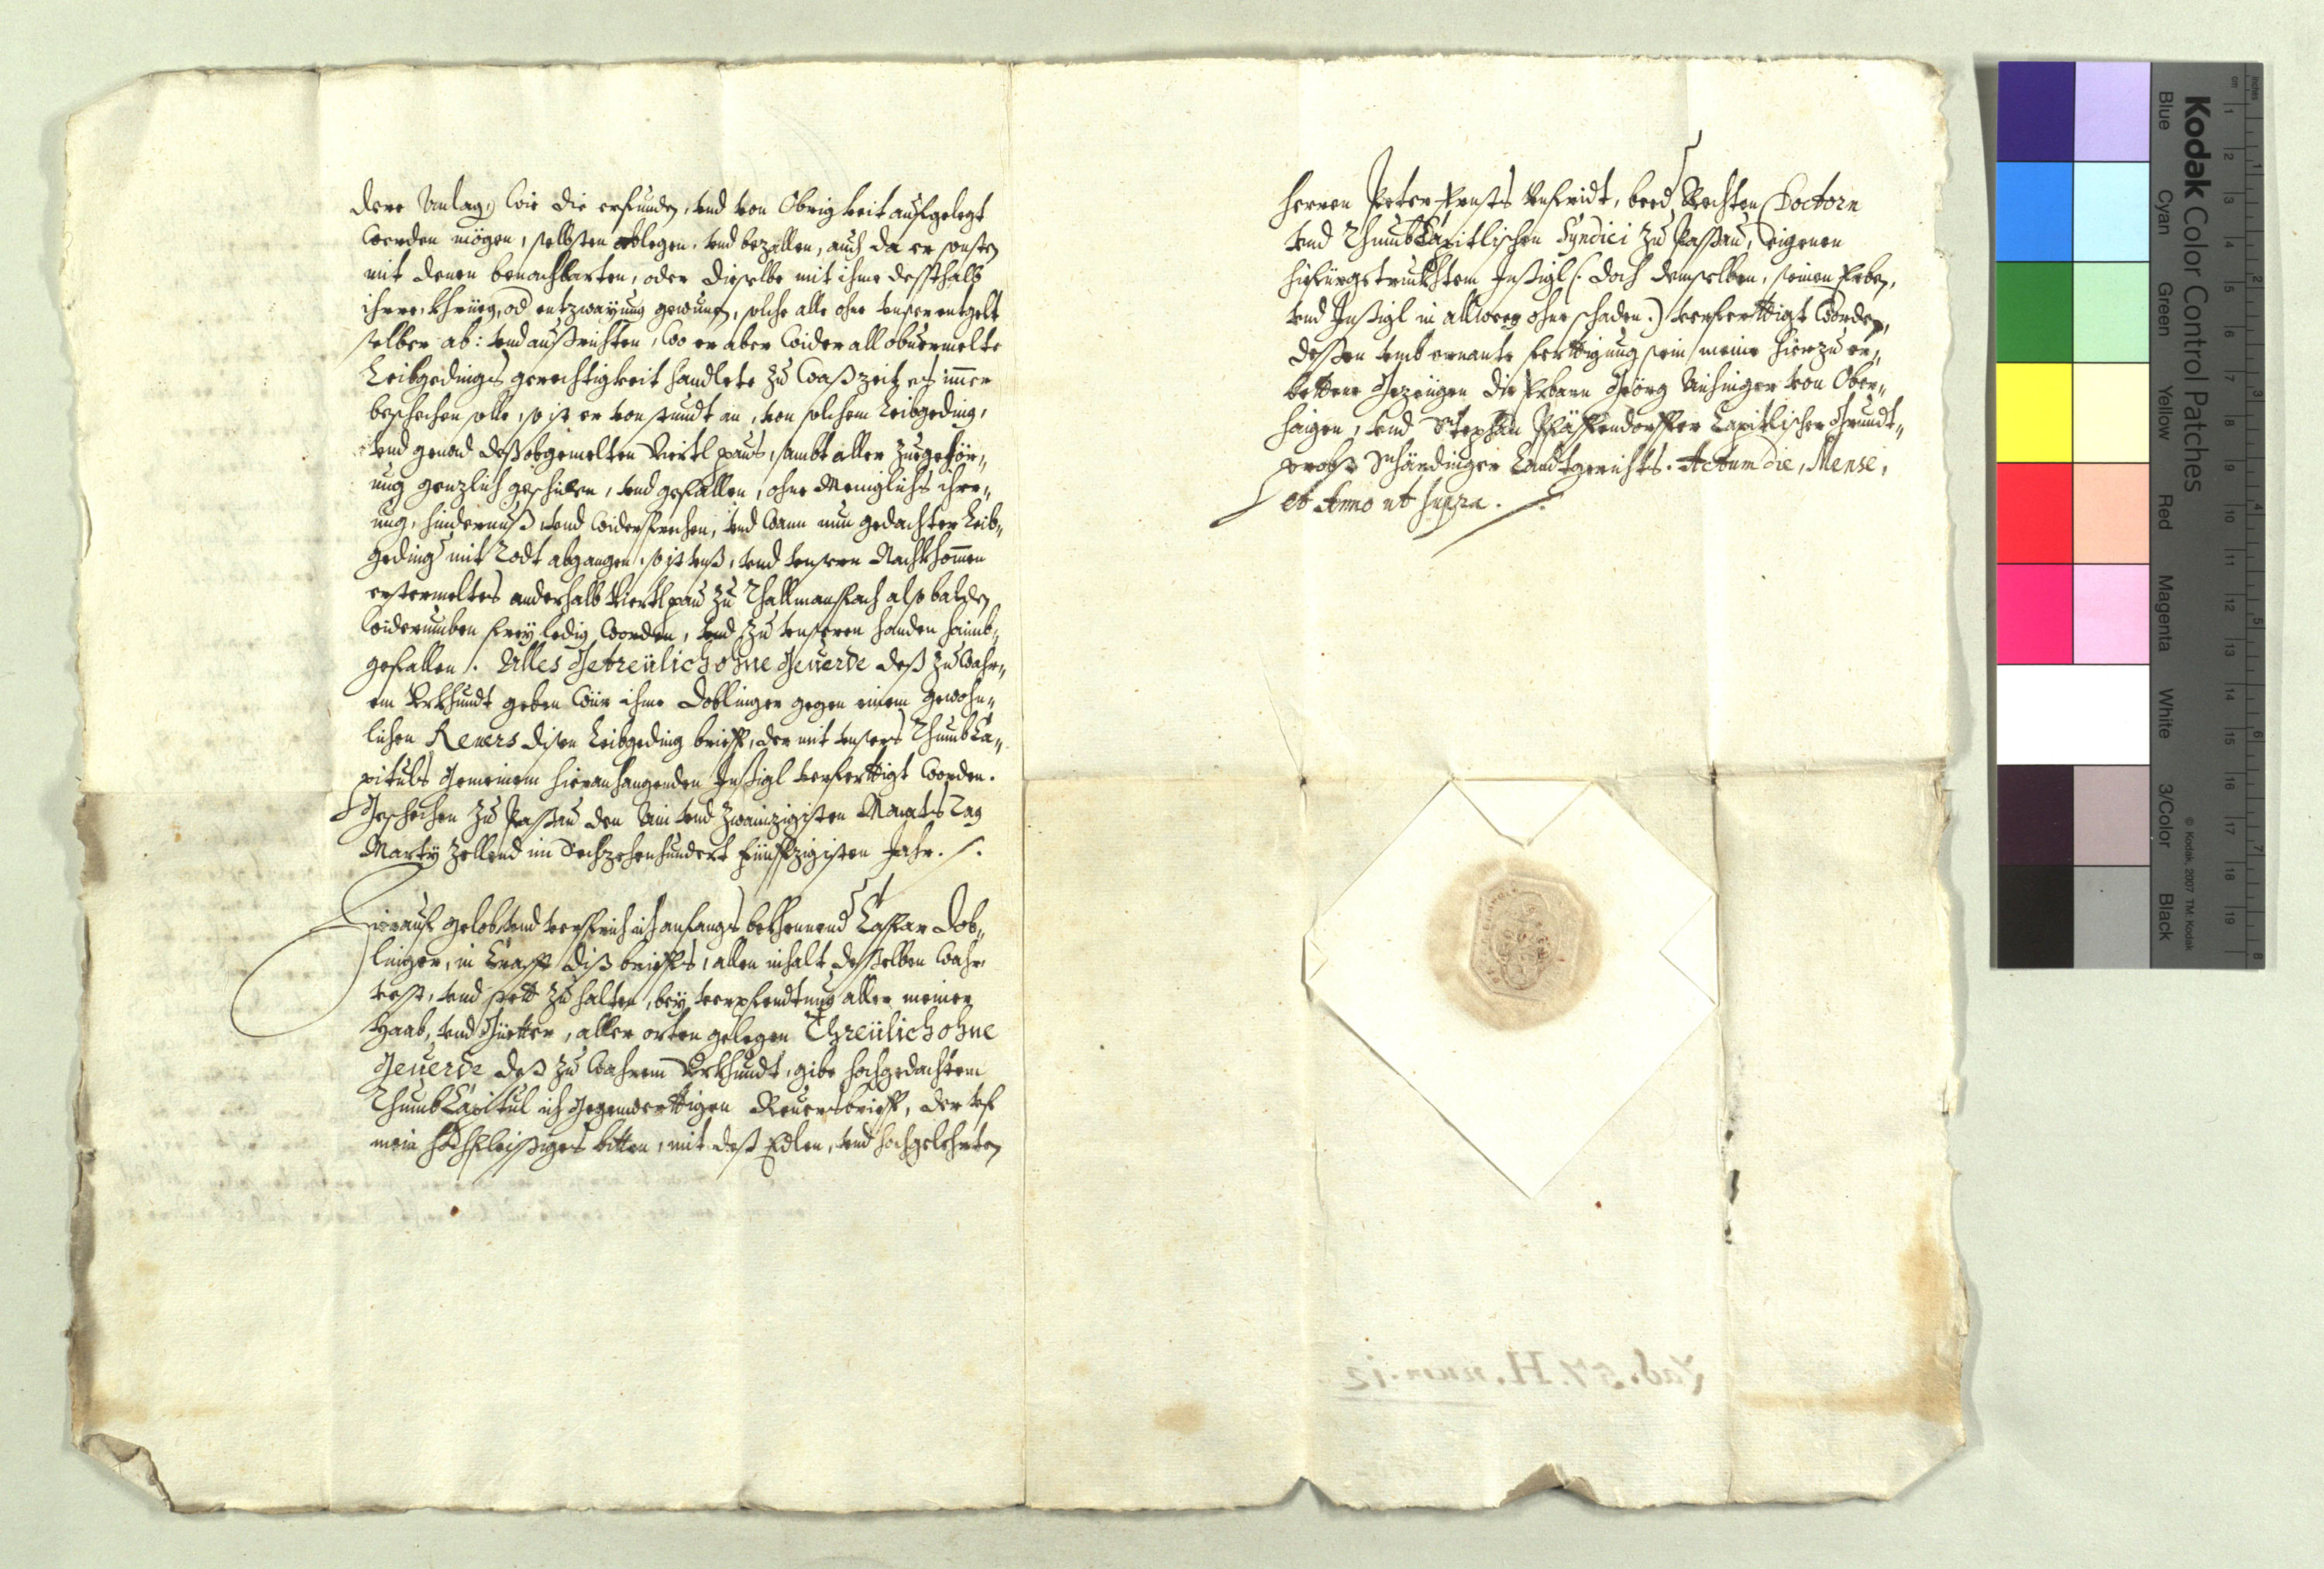 dere Anlag, Wie die erfunden, vnd von Obrigkeit aufgelegt
Werden mögen, selbsten ablegen, vnd bezallen, auch da er sonsten
mit denen benachbarten, oder dieselbe mit ihme dessthalb
ihrre, khrieg, od entzwayung gewunen, solche alle ohne vnser entgelt
selber ab: vnd außrichten, Wo er aber Wider all obuermelte
Leibgedings gerechtigkeit handlete zu Waß zeit es imer
beschechen solle, so ist er von stundt an, von solchem Leibgeding,
vnd genad deß obgemelten Viertl paus, sambt aller Zuegehör„
ung genzlich geschiden, vnd gefallen, ohne Meniglichs ihrr„
ung, hindernuß, vnd Widersprechen, vnd Wann nun gedachter Leib„
geding mit Todt abgangen, so ist vnß, vnd vnsern Nachkhomen
erstermeltes anderhalb Viertlpau zu Thallmanspach also balden
Widerumben frey ledig Worden, vnd zu vnseren handen haimb„
gefallen. Alles Getreülich ohne Geuerde deß zu Wahr„
em Vrkhundt geben Wür ihme Doblinger gegen einem gewohn„
lichen Reuers disen Leibgeding brieff, der mit vnsers ThumbCa„
pituls Gemeinem hieranhangenden Insigl verferttigt Worden.
Geschechen zu Passau den Ain vnd zwainzigisten Monats Tag
Marty zellend im Sechzehenhundert fünffzigisten Jahr. /.
Hierauf gelob vnd versprich ich anfangs bekhennend Caspar Dob„
linger, in Crafft diß brieffs, allen inhalt desselben Wahr
vest, vnd stett zu halten, bey verpfendtung aller meiner
Haab, vnd Güetter, aller orten gelegen Threülich ohne
Geuerde deß zu Wahrem Vrkhundt, gibe hochgedachtem
ThumbCapitul ich Gegenwerttigen Reuersbrieff, der vf
mein hochfleissiges bitten, mit deß Edlen, vnd hochgelehrten
Herren Peter Ernsts beed Rechten Doctorn
vnd ThumbCapitlischen Syndici zu Passau, aignen
hiefürgetruckhtem Insigl (: doch demselben, seinen Erben,
vnd Insigl in allweeg ohne schaden.) verferttigt Worden,
dessen vmb ernante ferttigung sein meine hierzu er„
bettene Gezeügen die Erbarn Geörg Aichinger von Ober„
haigen, vnd Stephan Pfäffendorffer Capitlischer Grundt„
probst Schärdinger Landtgerichts. Actum die, Mense,
et Anno ut supra. /.
Lad. 57. H. num. 12